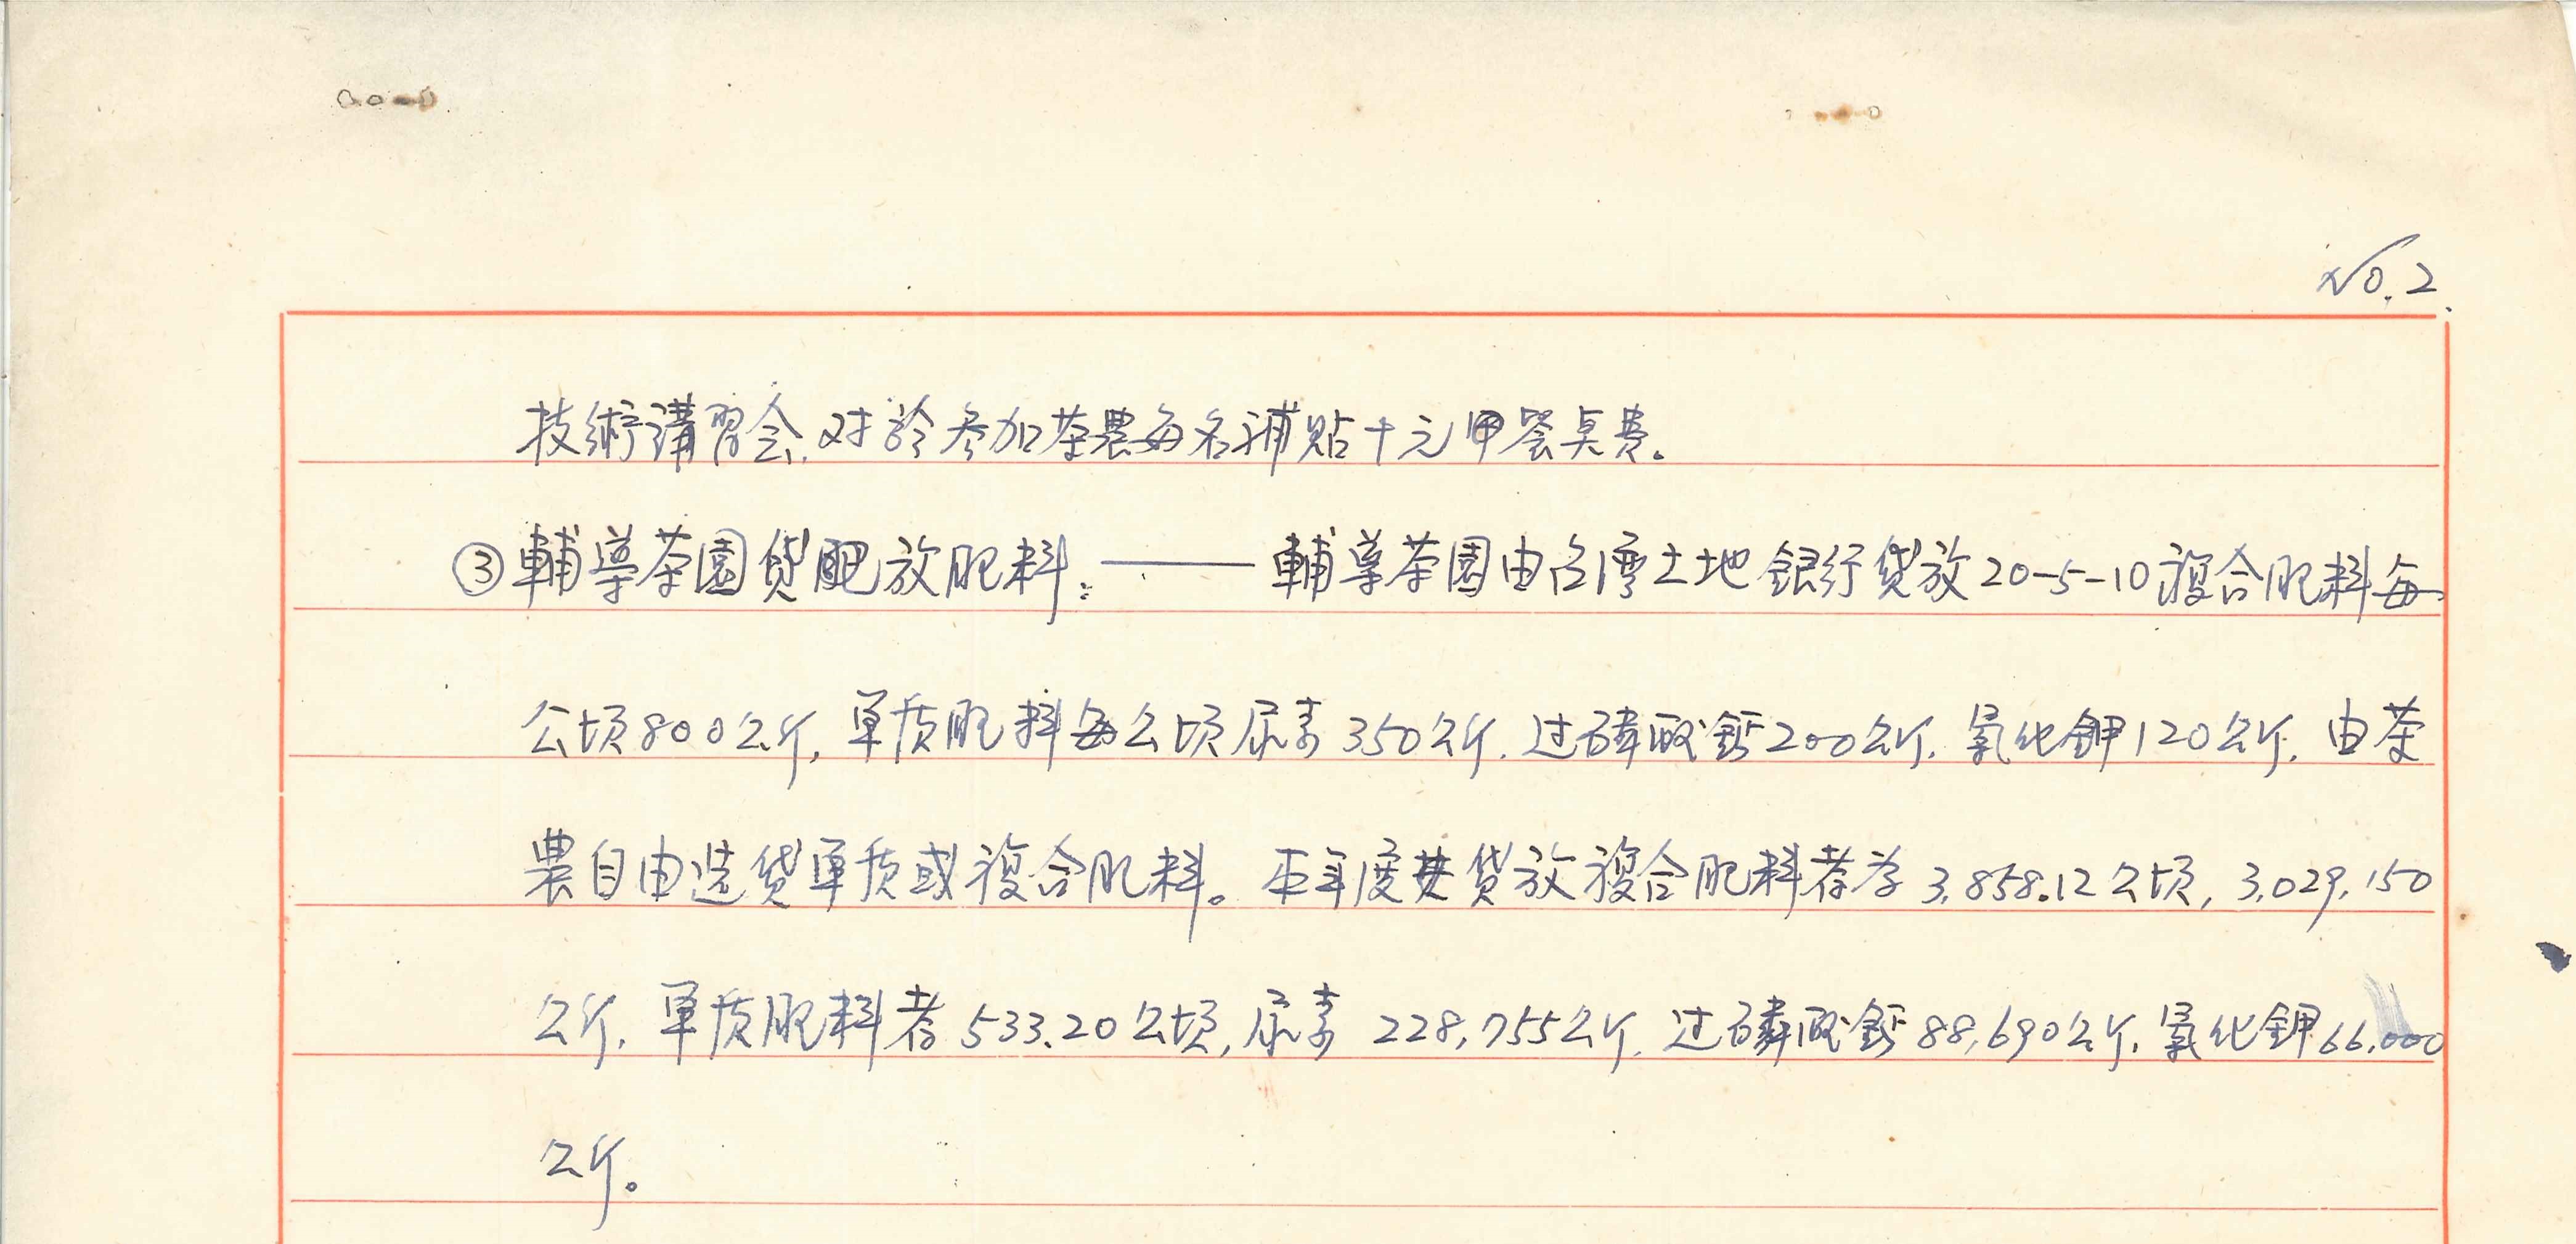 No.2.
技術講習会.对於参加茶農每名補貼十元甲餐桌費。
③輔導茶園贷肥放肥料:——輔導茶園由台湾土地銀行贷放20-5-10複合肥料每
公顷800公斤,单质肥料每公顷尿素350公斤.过磷酸鈣200公斤.氯化鉀120公斤.由茶
農自由选贷单质或複合肥料。本年度共贷放複合肥料者为3,858.12公顷,3,029,150
公斤.单质肥料者533.20公顷,尿素228,755公斤.过磷酸鈣88,690公斤.氯化鉀66,000
公斤。